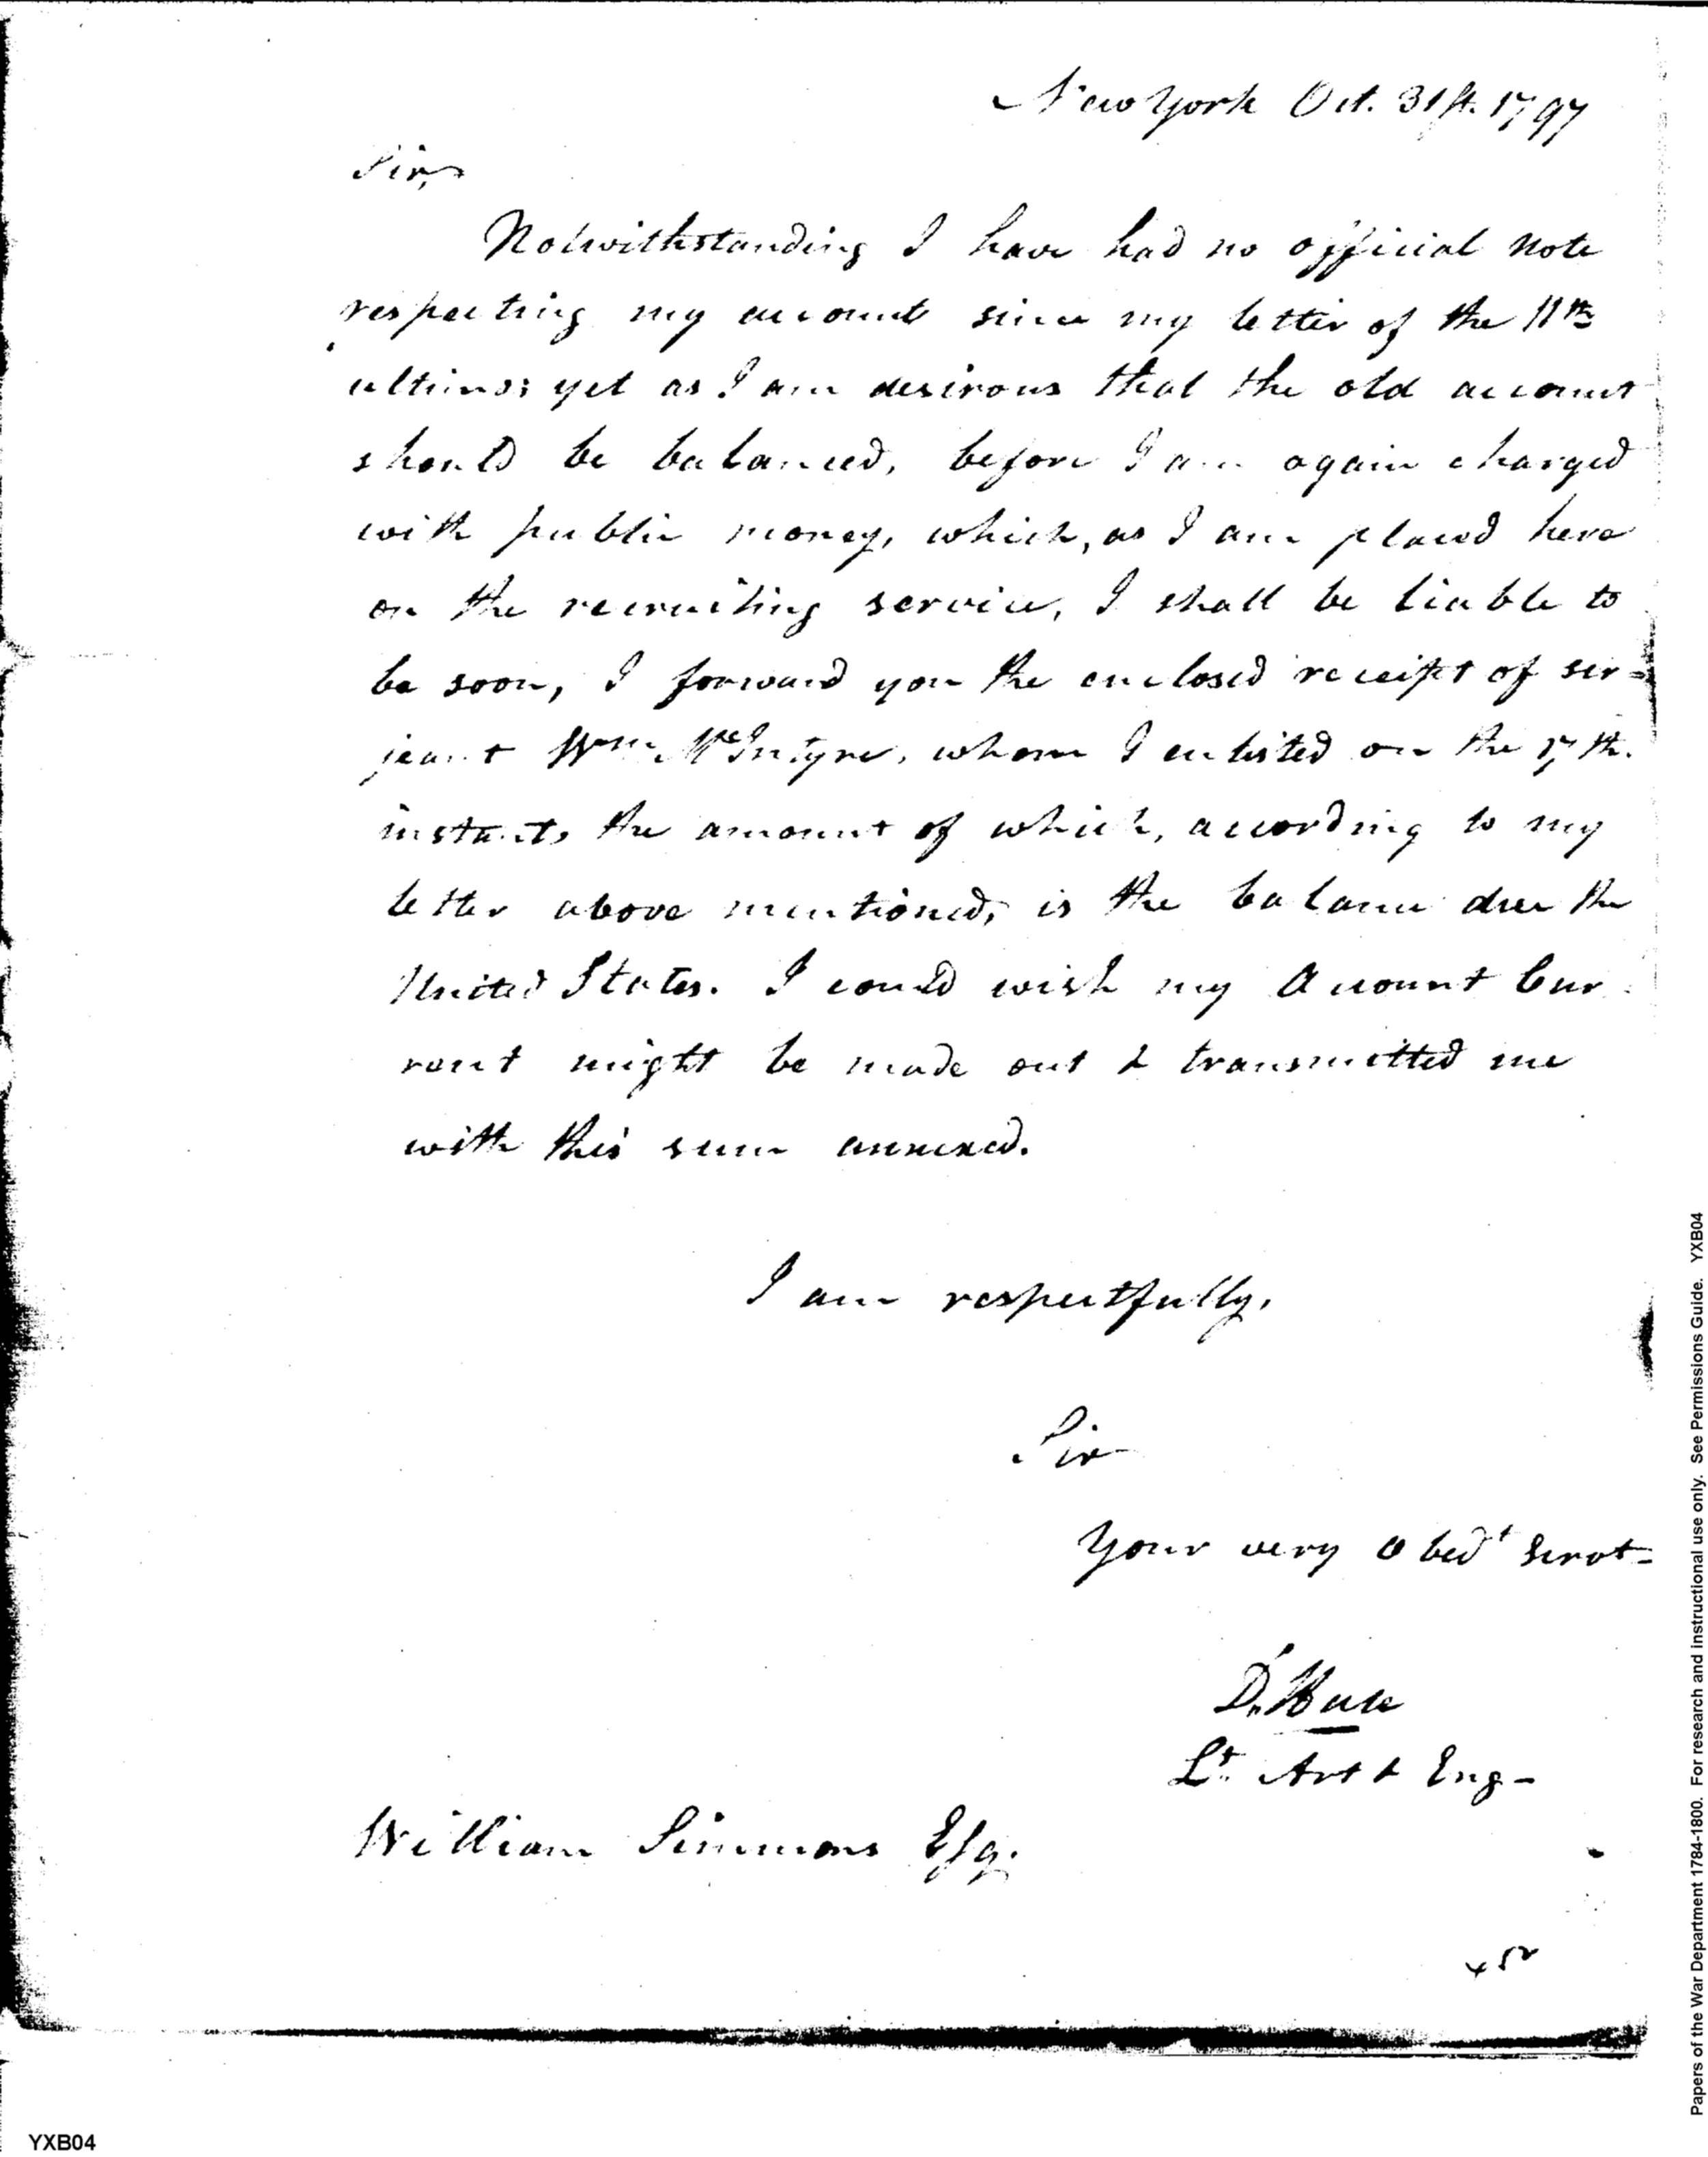 New York Oct. 31st. 1797
Sir,
Notwithstanding I have had no official note
respecting my account since my letter of the 11th
ultimo; yet as I am desirous that the old account
should be balanced, before I am again charged
with public money, which, as I am placed here
on the recruiting service, I shall be liable to
be soon, I forward you the enclosed receipt of ser=
jeant Wm. McIntyre, whom I enlisted on the 17th.
instant, the amount of which, according to my
letter above mentioned, is the balance due the
United States. I could wish my Account Cur
rent might be made out & transmitted me
with this sum annexed.
I am respectfully,
Sir
Your very Obedt Servt-
Lt. Art & Eng-
William Simmons Esq.
YXB04
Papers of the War Department 1784-1800. For research and instructional use only. See Permissions Guide. YXB04